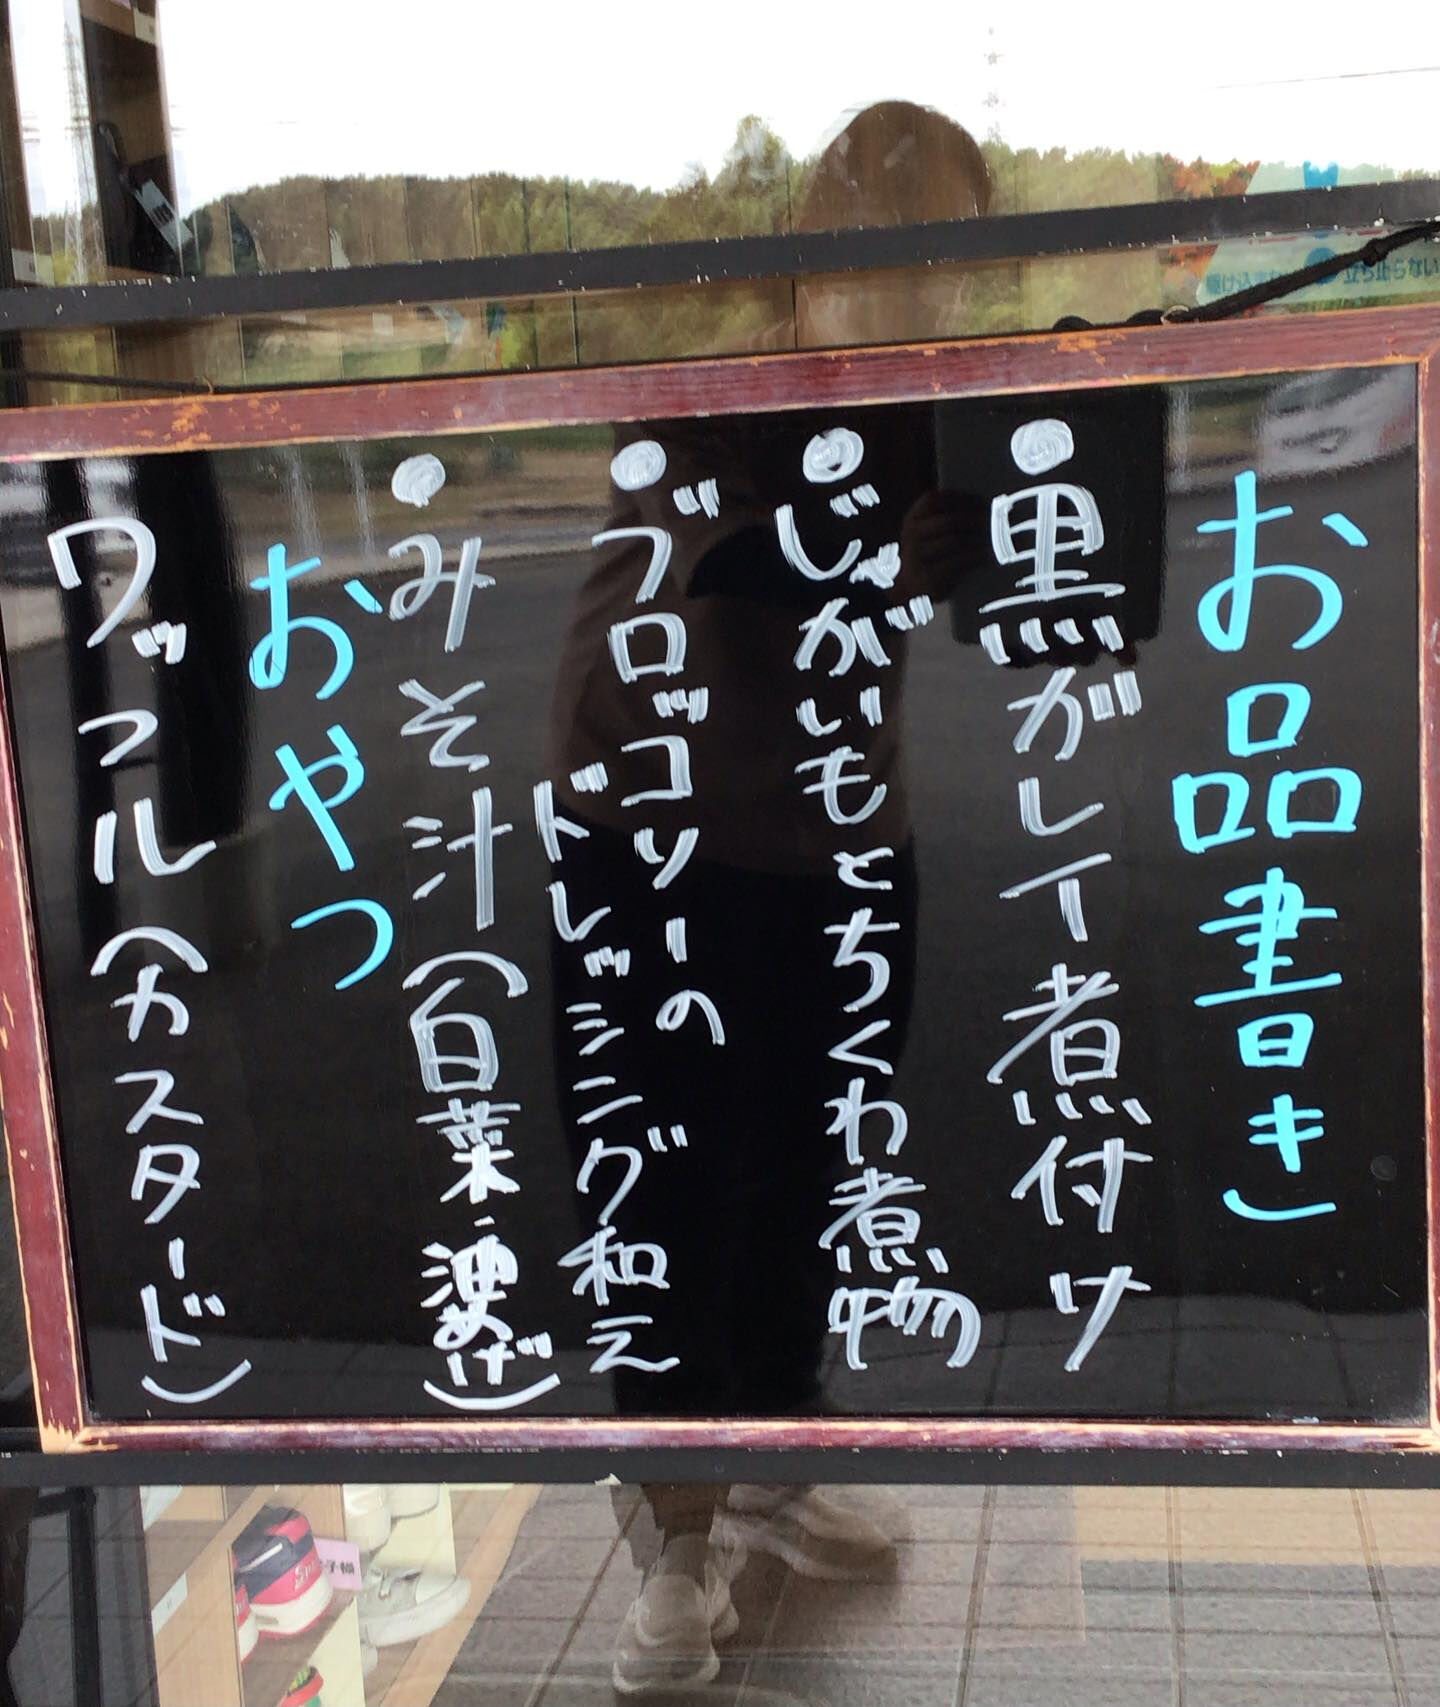 お品書き
●黒ガレイ煮付け
●じゃがいもとちくわ煮物
●ブロッコリーの
ドレッシング和え
●みそ汁(白菜・油あげ)
おやつ
ワッフル(カスタード)
立ち止らない
子様